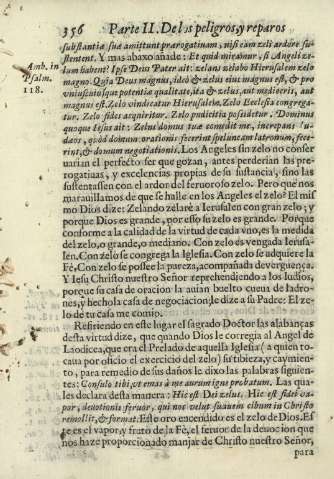 356 Parte II. De los peligros, y reparos
Amb. in
Psalm.
118.
substantiæ suæ amittunt prærogatiuam, nisi eam zeli ardore su-
stentent. Y mas abaxo añade: Et quid miramur, si Angeli ze-
lum habent? Ipse Deus Pater ait: zelans zelabo Hierusalem zelo
magno. Quia Deus magnus, ideo & zelus eius magnus est, & pro
vniuscuiusque potentiæ qualitate, ita & zelus, aut mediocris, aut
magnus est. Zelo vindicatur Hierusalem. Zelo Ecclesia congrega-
tur. Zelo fides acquiritur. Zelo pudicitia possidetur. Dominus
quoque Iesus ait: Zelus domus tuæ comedit me, increpans Iu-
dæos, quòd domum orationis fecerint speluncam latronum, fece-
rint, & domum negotiationis. Los Angeles sin zelo no conser
uarian el perfecto ser que gozan, antes perderian las pre-
rogatiuas, y excelencias propias de su sustancia, sino las
sustentassen con el ardor del feruoroso zelo. Pero que nos
marauillamos de que se halle en los Angeles el zelo? El mis-
mo Dios dize: Zelando zelarè a Ierusalen con gran zelo; y
porque Dios es grande, por esso su zelo es grande. Porque
conforme a la calidad de la virtud de cada vno, es la medida
del zelo, o grande, o mediano. Con zelo es vengada Ierusa-
len. Con zelo se congrega la Iglesia. Con zelo se adquiere la
Fè. Con zelo se possee la pureza, acompañada de verguença.
Y Iesu Christo nuestro Señor reprehendiendo a los Iudios,
porque su casa de oracion la auian buelto cueua de ladro-
nes, y hechola casa de negociacion, le dize a su Padre: El ze-
lo de tu casa me comio.
Refiriendo en este lugar el sagrado Doctor las alabanças
desta virtud dize, que quando Dios le corregia al Angel de
Laodicea, que era el Prelado de aquella Iglesia (a quien to-
caua por oficio el exercicio del zelo) su tibieza, y caymien-
to, para remedio de sus daños le dixo las palabras siguien-
tes: Consulo tibi, vt emas à me aurum igne probatum. Las qua-
les declara desta manera: Hic est Dei zelus. Hic est fidei va-
por, deuotionis feruor, qui nos velut suauem cibum in Christo
remollit, & format. Este oro encendido es el zelo de Dios. Es-
te es el vapor, y fruto de la Fè, el feruor de la deuocion que
nos haze proporcionado manjar de Christo nuestro Señor,
para